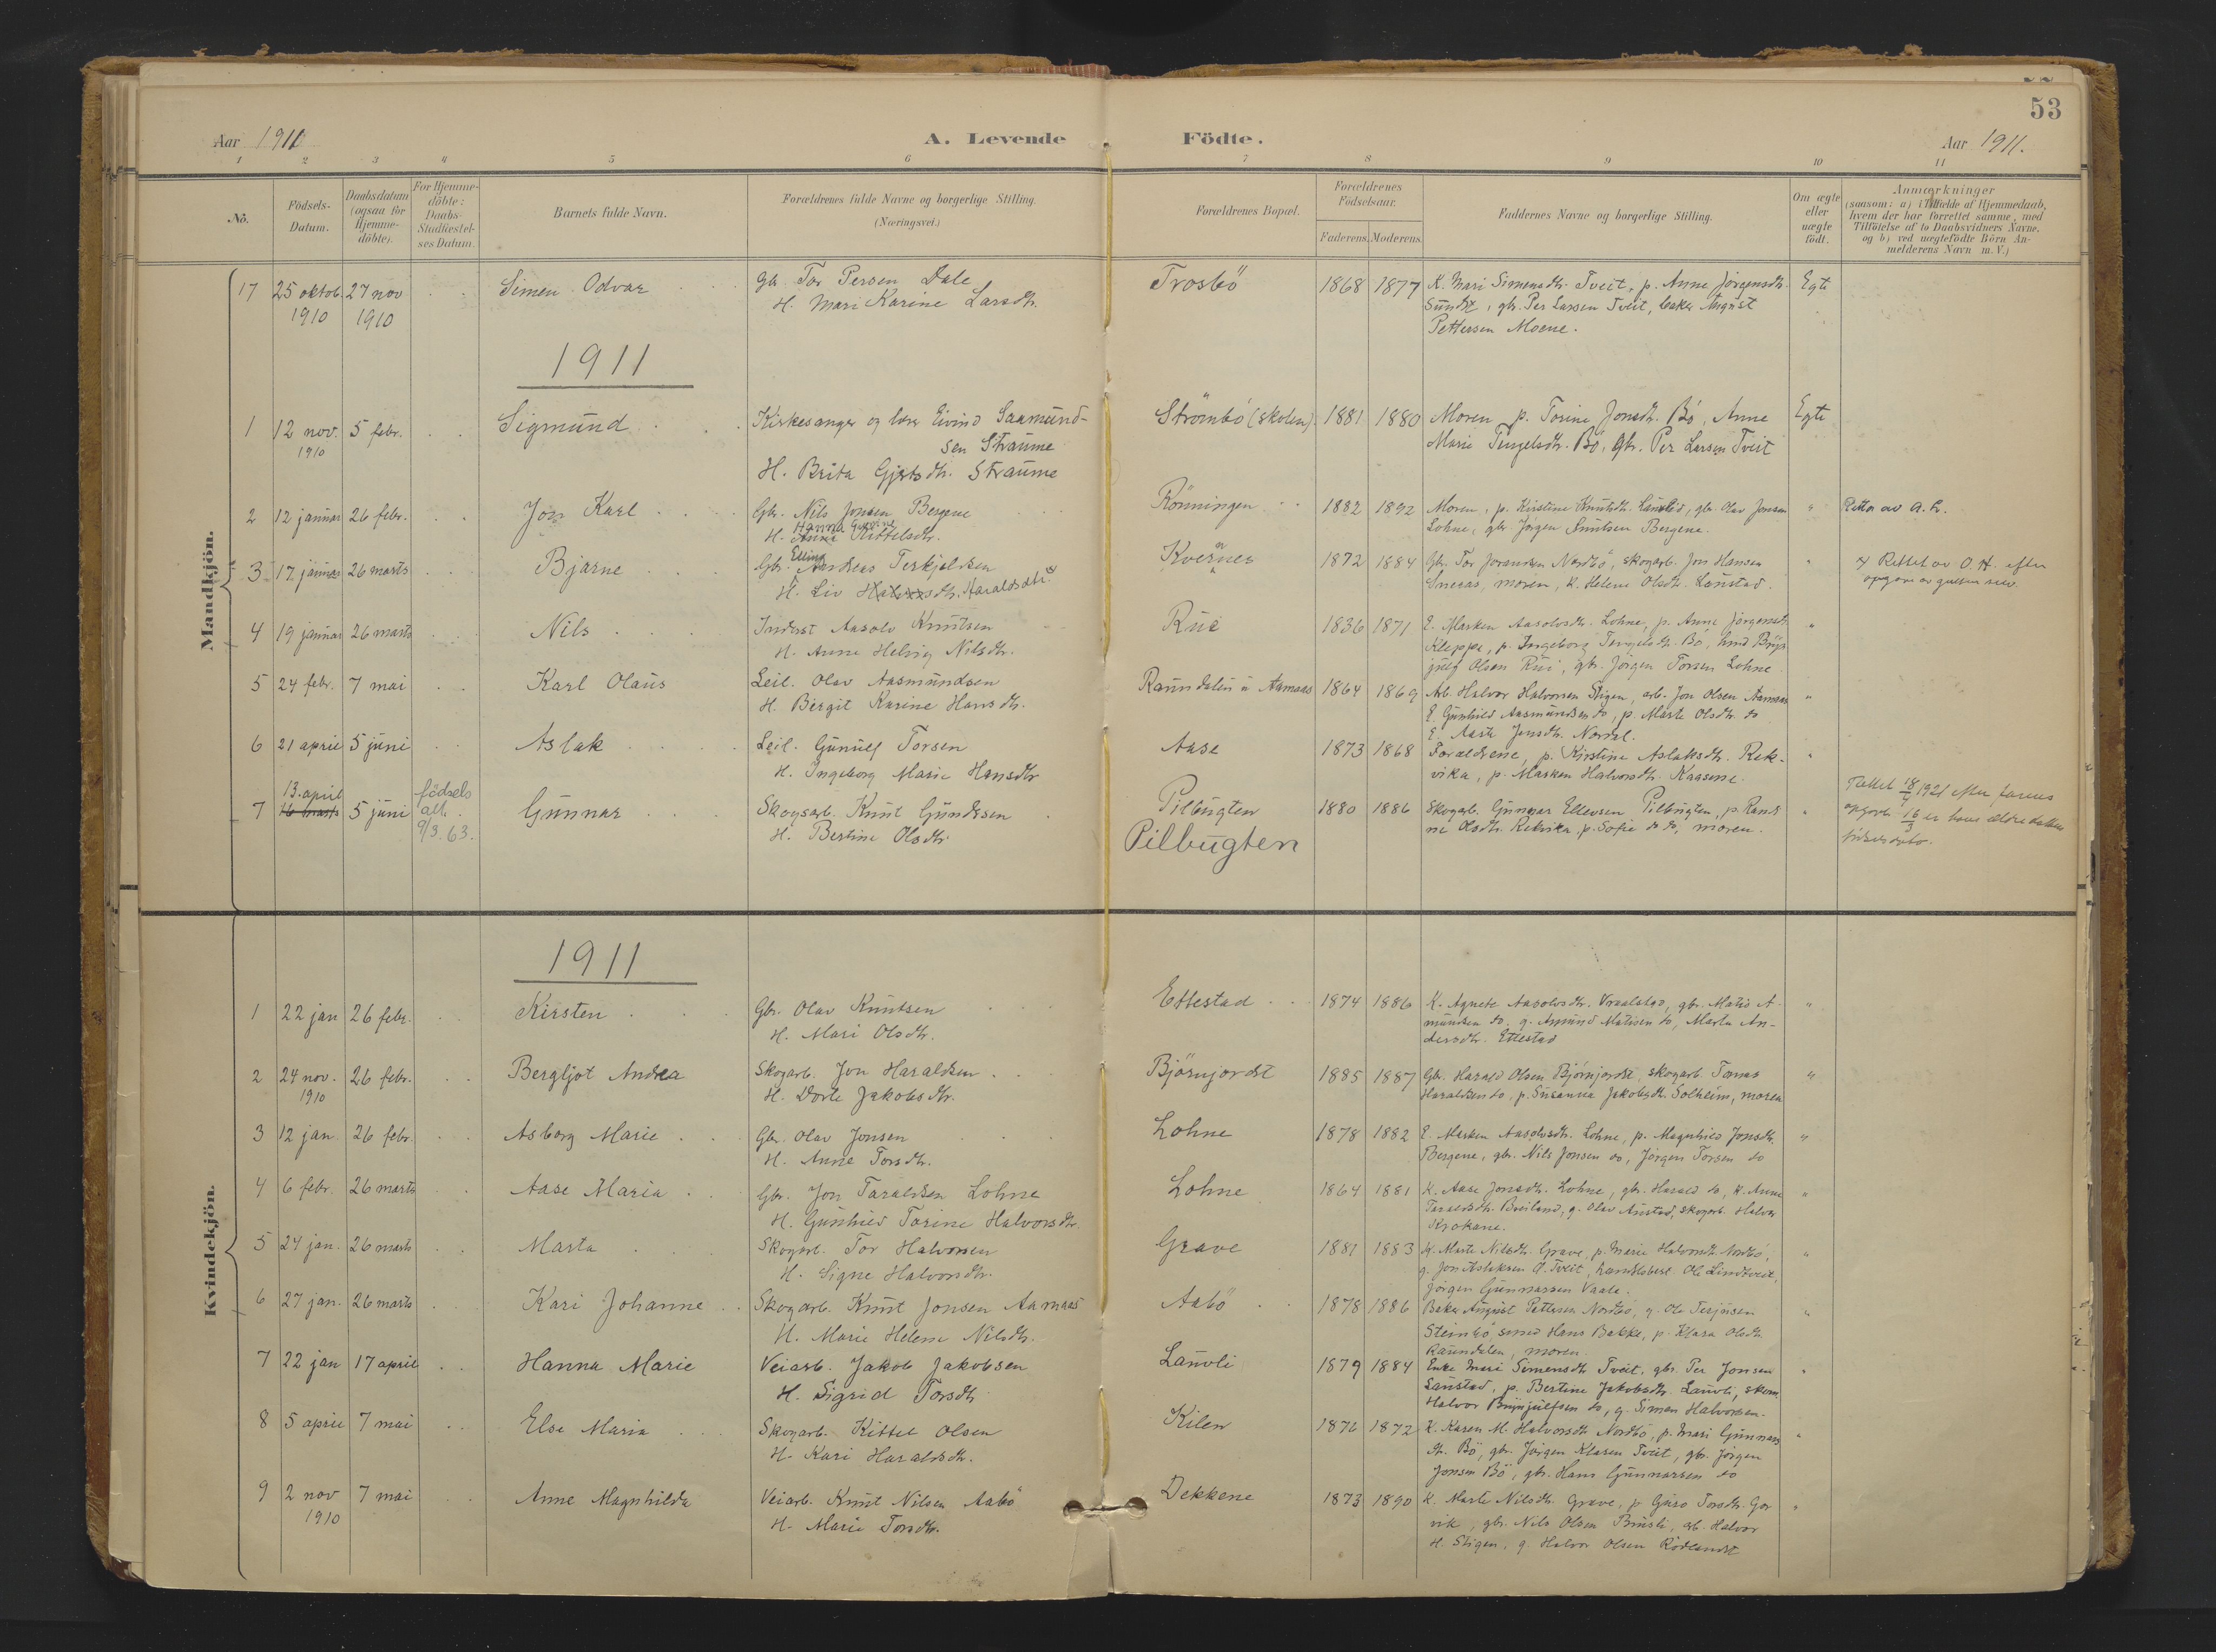 53
Aar 1911
A. Levende Födte.
Aar 1911.
1 2 3 4 5 6 7 8 9 10 11
No.
Födsels-Datum.
Daabsdatum (ogsaa for Hjemme-döbte).
For Hjemme-döbte: Daabs-Stadfæstel-ses Datum.
Barnets fulde Navn.
Forældrenes fulde Navne og borgerlige Stilling. (Næringsvei.)
Forældrenes Bopæl.
Forældrenes Födselsaar.
Faderens. Moderens.
Faddernes Navne og borgerlige Stilling.
Om ægte eller uægte födt.
Anmærkninger (saasom: a) i Tilfælde af Hjemmedaab, hvem der har forrettet samme, med Tilföielse af to Daabsvidners Navne. og b) ved uægtefödte Börn An-melderens Navn m. V.)
Mandkjön.
17 25 oktob. 27 nov Simen Odvar Gbr. Tor Persen Dale Trosbö 1868 1877 K. Mari Simensdtr. Tveit, p. Anne Jörgensdtr. Egte
1910 1910 H. Mari Karine Larsdtr. Sundst, gbr. Per Larsen Tveit, baker August
Pettersen Moene.
1911
1 12 nov. 5 febr. Sigmund Kirkesanger og lærer Eivind Saamund- Strömbö (skolen) 1881 1880 Moren p. Torine Jonsdtr. Bö, Anne Egte
1910 sen Straume Marie Tengelsdtr. Bö, gbr. Per Larsen Tveit
H. Brita Gjertsdtr. Straume
2 12 januar 26 febr. Jon Karl Gbr. Nils Jonsen Bergene Rönningen 1882 1892 Moren, p. Kirstine Knutsdtr. gbr. Olav Jonsen "
H. Hanna Kittelsdtr. Lohne, gbr. Jörgen Bergene.
3 17 januar 26 marts Bjarne Gbr. Elling Terkjelsen Kvernes 1872 1884 Gbr. Tor Nordbö, skogarb. Jon Hansen " x Rettet av O. H. efter
H. Liv Haraldsdtr. Sneaas, moren, K. Helene Olsdtr. Laustad.
4 19 januar 26 marts Nils Inderst Aasolv Knutsen Rui 1836 1871 E. Marken Aasolvsdtr. Lohne, p. Anne Jörgensdtr. "
H. Anne Helvig Nilsdtr. Kleppe, p. Ingeborg Tengelsdtr. Bö,
Olsen Rui, gbr. Jörgen Torsen Lohne.
5 24 febr. 7 mai Karl Olaus Leil. Olav Aasmundsen Raundalen u Aamaas 1864 1869 Arb. Halvor Halvorsen Stigen, arb. Jon Olsen Aamaas "
H. Bergit Karine Hansdtr. E. Gunhild Aasmundsen do, p. Marte Olsdtr. do
E. Aaste Jonsdtr.
6 21 april 5 juni Aslak Leil. Gunulf Torsen Aase 1873 1868 Forældrene, p. Kirstine Aslaksdtr. Rek- "
H. Ingeborg Marie Hansdtr vika, p. Marken Halvorsdtr. Kaasene.
7 13. april 16 marts 5 juni födsels att. 9/3. 63. Gunnar Skogsarb. Knut Gundersen Pilbugten 1880 1886 Skogarb. Gunnar Ellevsen Pilbugten, p. Rand "
H. Bertine Olsdtr. Pilbugten ne Olsdtr. Rekvika, p. Sofie do do, moren.
Kvindekjön.
1911
1 22 jan 26 febr. Kirsten Gbr. Olav Knutsen Ettestad 1874 1886 K. Agnete Aasolvsdtr. Vraalstad, gbr. Matis A- "
H. Mari Olsdtr. mundsen do, g. Amund Matisen do, Marta An-
dersdtr. Ettestad
2 24 nov. 26 febr. Bergljot Andrea Skogarb. Jon Haraldsen Björnjordst 1885 1887 Gbr. Harald Olsen Björnjordst, skogarb. Tomas "
1910 H. Dorte Jakobsdtr. Haraldsen do, p. Susanna Jakobsdtr. Solheim, moren
3 12 jan. 26 febr. Asborg Marie Gbr. Olav Jonsen Lohne 1878 1882 E. Marken Aasolvsdtr. Lohne, p. Magnhild Jonsdtr. "
H. Anne Torsdtr. Bergene, gbr. Nils Jonsen do, Jörgen Torsen do
4 6 febr. 26 marts Aase Maria Gbr. Jon Taraldsen Lohne Lohne 1864 1881 K. Aase Jonsdtr. Lohne, gbr. Harald do, K. Anne "
H. Gunhild Torine Halvorsdtr. Taraldsdtr. Breiland, g. Olav Austad, skogarb. Halvor
Krokane.
5 24 jan. 26 marts Marta Skogarb. Tor Halvorsen Grave 1881 1883 K. Marte Nilsdtr. Grave, p. Marie Halvorsdtr. Nordbö, "
H. Signe Halvorsdtr. g. Jon Aslaksen Tveit, handelsbest. Ole Lindtveit,
Jörgen Gunnarsen Vaale.
6 27 jan. 26 marts Kari Johanne Skogarb. Knut Jonsen Aamaas Aabö 1878 1886 Baker August Pettersen Nordbö, g. Ole Terjusen "
H. Marie Helene Nilsdtr. Steinbö, smed Hans Bakke, p. Klara Olsdtr.
Raundalen, moren.
7 22 jan 17 april Hanna Marie Veiarb. Jakob Jakobsen Lauvli 1879 1884 Enke Mari Simensdtr. Tveit, gbr. Per Jonsen "
H. Sigrid Torsdtr. Laustad, p. Bertine Jakobsdtr. Lauvli, skom.
Halvor Brynjulfsen do, g. Simen Halvorsen.
8 5 april 7 mai Else Maria Skogarb. Kittel Olsen Kilen 1876 1872 K. Karen M. Halvorsdtr. Nordbö, p. Mari Gunnars "
H. Kari Haraldsdtr. dtr. Bö, gbr. Jörgen Klasen Tveit, gbr. Jörgen
Jonsen Bö, gbr. Hans Gunnarsen do
9 2 nov 7 mai Anne Magnhilda Veiarb. Knut Nilsen Aabö Dekkene 1873 1890 K. Marte Nilsdtr. Grave, p Guro Torsdtr. Gor "
1910 H. Marie Torsdtr. vik, gbr. Nils Olsen Brusli, arb. Halvor
H. Stigen, g. Halvor Olsen